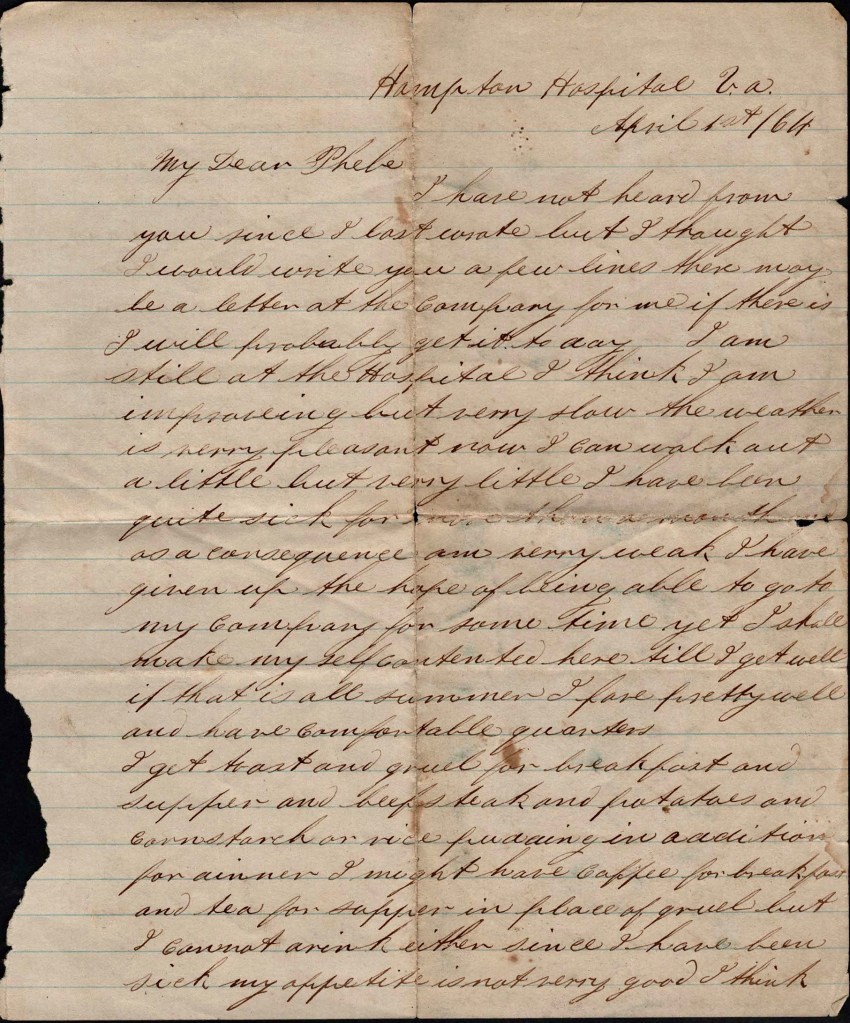 Hampton Hospital V.a.
April 1st /64
My Dear Phebe
I have not heard from
you since I last wrote but I thought
I would write you a few lines there may
be a letter at the Company for me if there is
I will probably get it to day I am
still at the Hospital I think I am
improveing but verry slow the weather
is verry pleasant now I can walk out
a little but verry little I have been
quite sick for more than a month
as a consequence am verry weak I have
given up the hope of being able to go to
my Company for some time yet I shall
make my self contented here till I get well
if that is all summer I fare pretty well
and have comfortable quarters
I get toast and gruel for breakfast and
supper and beefsteak and potatoes and
cornstarch or rice pudding in addition
for dinner I might have coffee for breakfast
and tea for supper in place of gruel but
I cannot drink either since I have been
sick my appetite is not verry good I think